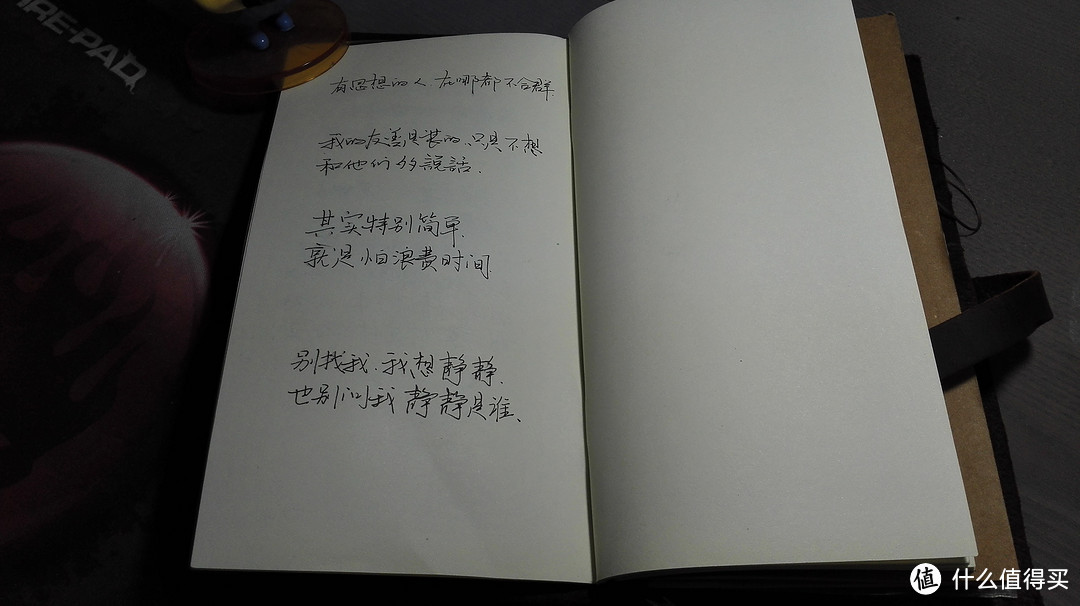 FIRE-PAD
有思想的人.在哪都不合群.
我的友善是装的.只是不想
和他们多説話.
其实特别简单.
就是怕浪费时间.
别找我.我想静静.
也别问我静静是谁、
值 什么值得买